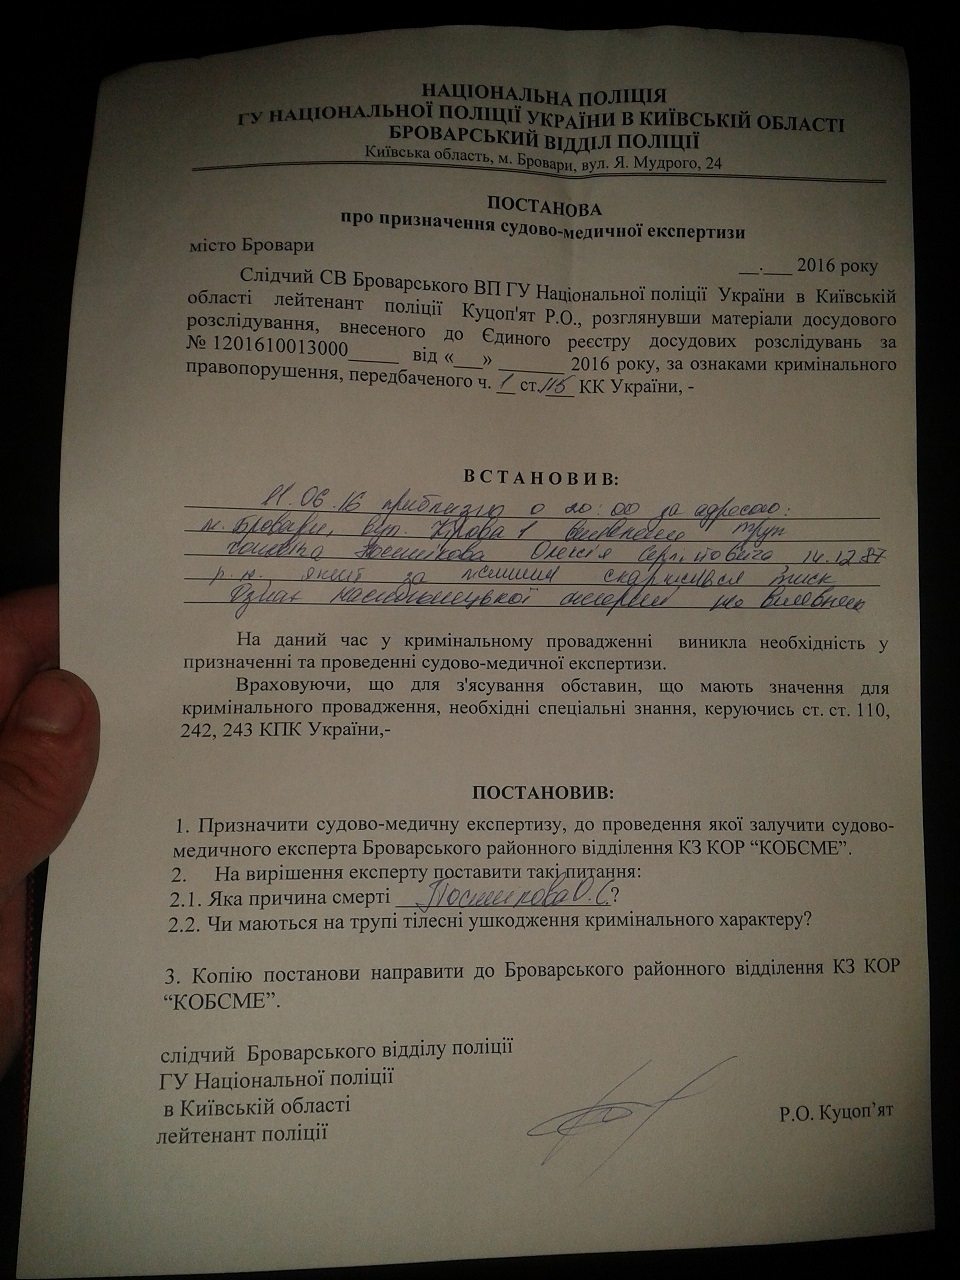 НАЦІОНАЛЬНА ПОЛІЦІЯ
ГУ НАЦІОНАЛЬНОЇ ПОЛІЦІЇ УКРАЇНИ В КИЇВСЬКІЙ ОБЛАСТІ
БРОВАРСЬКИЙ ВІДДІЛ ПОЛІЦІЇ
Київська область, м. Бровари, вул. Я. Мудрого, 24
ПОСТАНОВА
про призначення судово-медичної експертизи
місто Бровари
__.___ 2016 року
Слідчий СВ Броварського ВП ГУ Національної поліції України в Київській
області лейтенант поліції Куцоп'ят Р.О., розглянувши матеріали досудового
розслідування, внесеного до Єдиного реєстру досудових розслідувань за
№ 1201610013000_____ від «___» ______ 2016 року, за ознаками кримінального
правопорушення, передбаченого ч. 1 ст. 115 КК України, -
ВСТАНОВИВ:
11.06.16 приблизно о 20:00 за адресою:
м. Бровари, вул. Кірова 1 виявлено труп
Олексія 14.12.87
р.н. який за скаржився тиск
Ознак насильницької смерті не виявлено
На даний час у кримінальному провадженні виникла необхідність у
призначенні та проведенні судово-медичної експертизи.
Враховуючи, що для з'ясування обставин, що мають значення для
кримінального провадження, необхідні спеціальні знання, керуючись ст. ст. 110,
242, 243 КПК України,-
ПОСТАНОВИВ:
1. Призначити судово-медичну експертизу, до проведення якої залучити судово-
медичного експерта Броварського районного відділення КЗ КОР “КОБСМЕ”.
2. На вирішення експерту поставити такі питання:
2.1. Яка причина смерті О.С.?
2.2. Чи маються на трупі тілесні ушкодження кримінального характеру?
3. Копію постанови направити до Броварського районного відділення КЗ КОР
“КОБСМЕ”.
слідчий Броварського відділу поліції
ГУ Національної поліції
в Київській області
лейтенант поліції
Р.О. Куцоп’ят